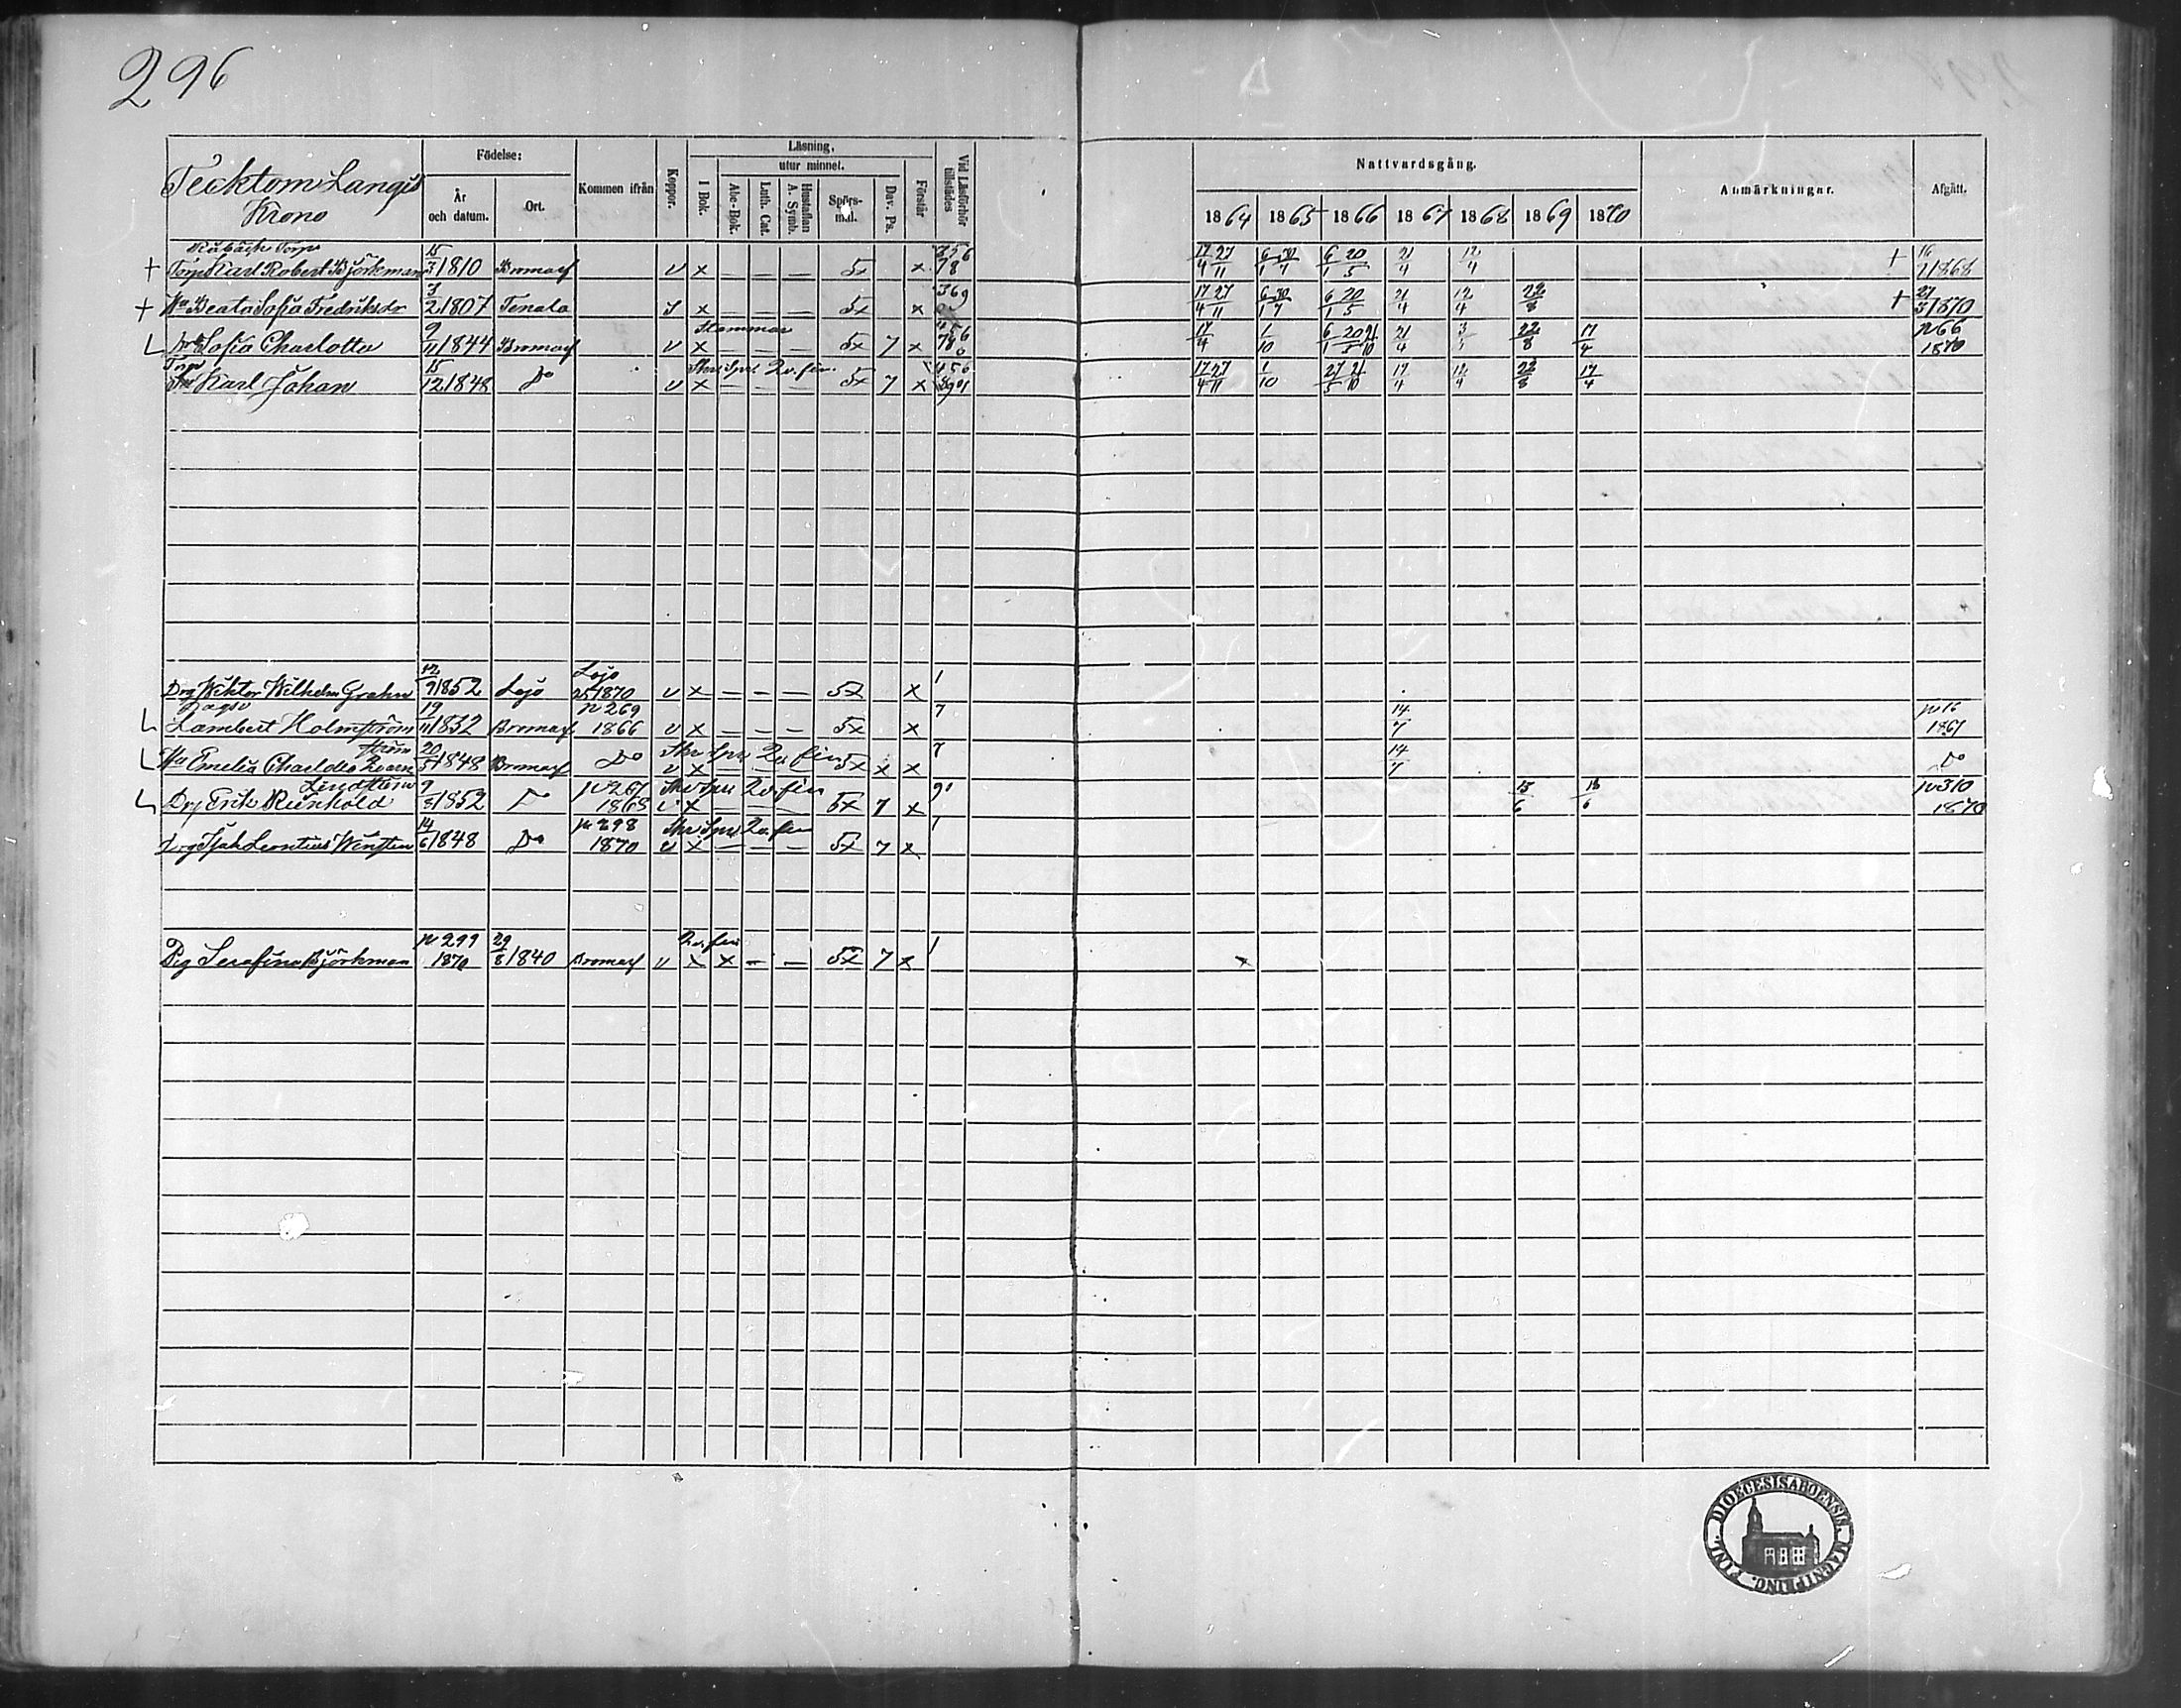 296
Tecktom Langis
Krono
Födelse:
År
och datum.
Ort.
Kommen ifrån
Koppor.
Läsning,
utur minnet.
I Bok.
Abc-Bok.
Luth. Cat.
Hustaflan
A. Symb.
Spörs-
mål.
Dav. Ps.
Förstår
Vid Läsförhör
tillstädes
Nattvardsgång.
1864 1865 1866 1867 1868 1869 1870
Anmärkningar.
Afgått.
Torp
+ Torp Karl Robert Björkman 15/3 1810 Bromarf v x — — — 5x x 17/4 27/11 6/1 6/1 20/5 21/4 12/4 + 16/7 1868
+ Hu Beata Sofia Fredriksdr 3/2 1807 Tenala x — — — 5x x 17/4 27/11 6/1 20/5 21/4 12/4 22/8 + 27/3 1870
Stammar
L Dr Sofia Charlotta 9/11 1844 Bromarf v x — — — 5x 7 x 17/4 1/10 6/1 20/5 21/10 21/4 22/8 17/4 p 66
1870
Torp
Son Karl Johan 15/12 1848 Do v x — — — 5x 7 x 17/4 27/11 1/10 27/5 21/10 17/4 12/4 22/8 17/4
Lojo
Drg Wiktor Wilhelm Grahn 12/9 1852 Lojo 1870 v x — — — 5x x 1
p 269
L Lambert Holmström 19/11 1832 Bromarf 1866 v x — — — 5x x 7 14/7 p 16
1867
ström
L Hu Emelia Charlotta 20/5 1848 Bromarf Do v x 5x x x 7 14/7 Do
Lindsten p 267
L Drg Erik Reinhold 9/8 1852 Do 1868 v x — — — 5x 7 x 13/6 18/6 p 310
1870
p 298
Drg Isak Leontius Wensten 14/6 1848 Do 1870 v x — — — 5x 7 x 1
p 299
Pig Serafina Björkman 1870 29/8 1840 Bromarf v x x — — 5x 7 x 1
DIOECESIS ABOENSIS MAGNI PRINC. FINL.